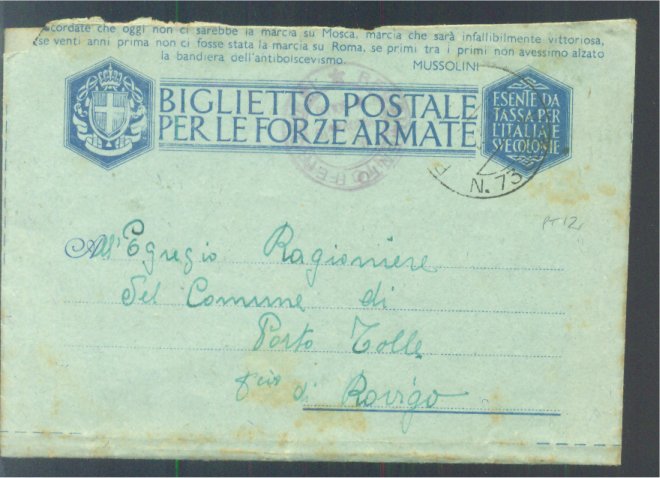 cordate che oggi non ci sarebbe la marcia su Mosca, marcia che sarà infallibilmente vittoriosa,
se venti anni prima non ci fosse stata la marcia su Roma, se primi tra i primi non avessimo alzato
la bandiera dell'antibolscevismo. MUSSOLINI
BIGLIETTO POSTALE
PER LE FORZE ARMATE
ESENTE DA
TASSA PER
L'ITALIA E
SVE COLONIE
N. 73
PT 12
All'Egregio Ragioniere
del Comune di
Porto Tolle
di Rovigo